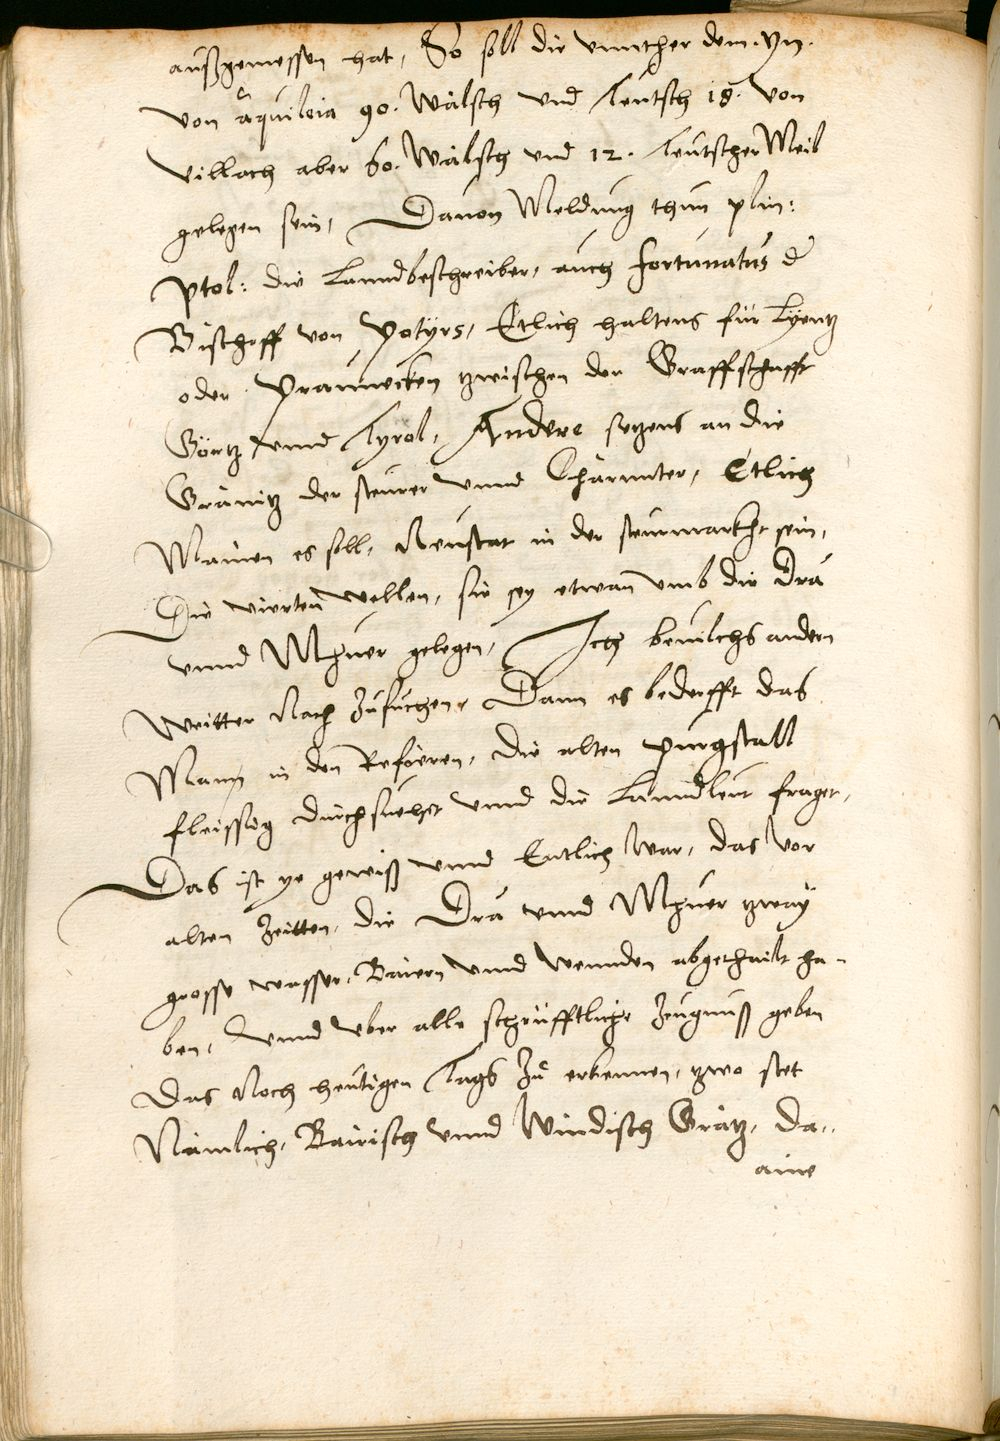 außgemessen hat, So soll die vnnther dem yn.
von aquileia 90. Wälsch vnd teutsch 18. von
Villach aber 60. Wälsch vnd 12. teutscher Meil
gelegen sein, Dauon Meldung thun plin:
Ptol: die Lanndbeschreiber, auch fortunatus d
Bischoff von Potÿrs, Etlich haltens für Lÿentz
oder Praunecken tzwischen der Graffschafft
Görtz vnnd Tyrol, Andere setzens an die
Gränitz der steurer vnnd Chärnnter, Etlich
Mainen es soll, Neustat in der steurmarkht sein,
Die vierten wellen, sie seÿ etwan vmb die Dra
vnnd Mhuer gelegen, Ich beuilchs andern
weitter Nach Zusuchen, Dann es bedarfft das
Mann in den Refieren, die alten purgstall
fleissig durchsuechet vnnd die Lanndleut fraget,
Das ist ye gewiß vnnd Entlich war, das vor
alten Zeitten, die Dra vnnd Mhuer tzwaÿ
grosse wasser, Baiern vnnd Wennden abgethailt ha-
ben, vnnd vber alle schrüfftliche Zeugnuß geben
das Noch heutigen tags Zu erkennen, tzwo stet
Nämlich, Bairisch vnnd Windisch Grätz, da..
aine